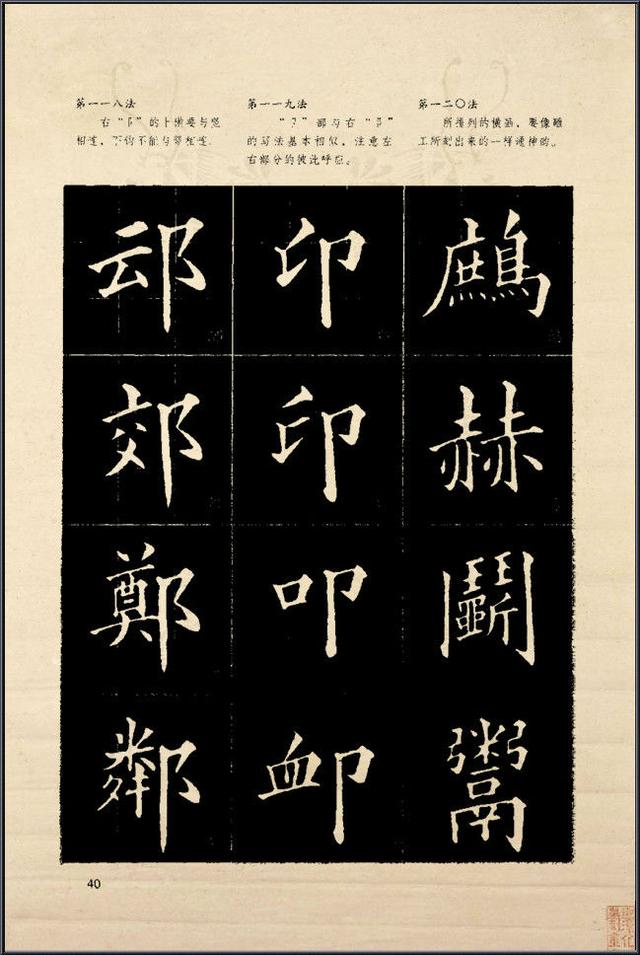 第一一八法
右“阝”的上撇要与竖
相连，下钩不能与竖相连.
第一一九法
“卩”部与右“阝”
的写法基本相似，注意左
右部分的彼此呼应。
第一二〇法
所排列的横画，要像雕
工所刻出来的一样通神的。
䢵 印 鷓
郊 印 赫
鄭 叩 鬭
鄰 卹 鬻
40